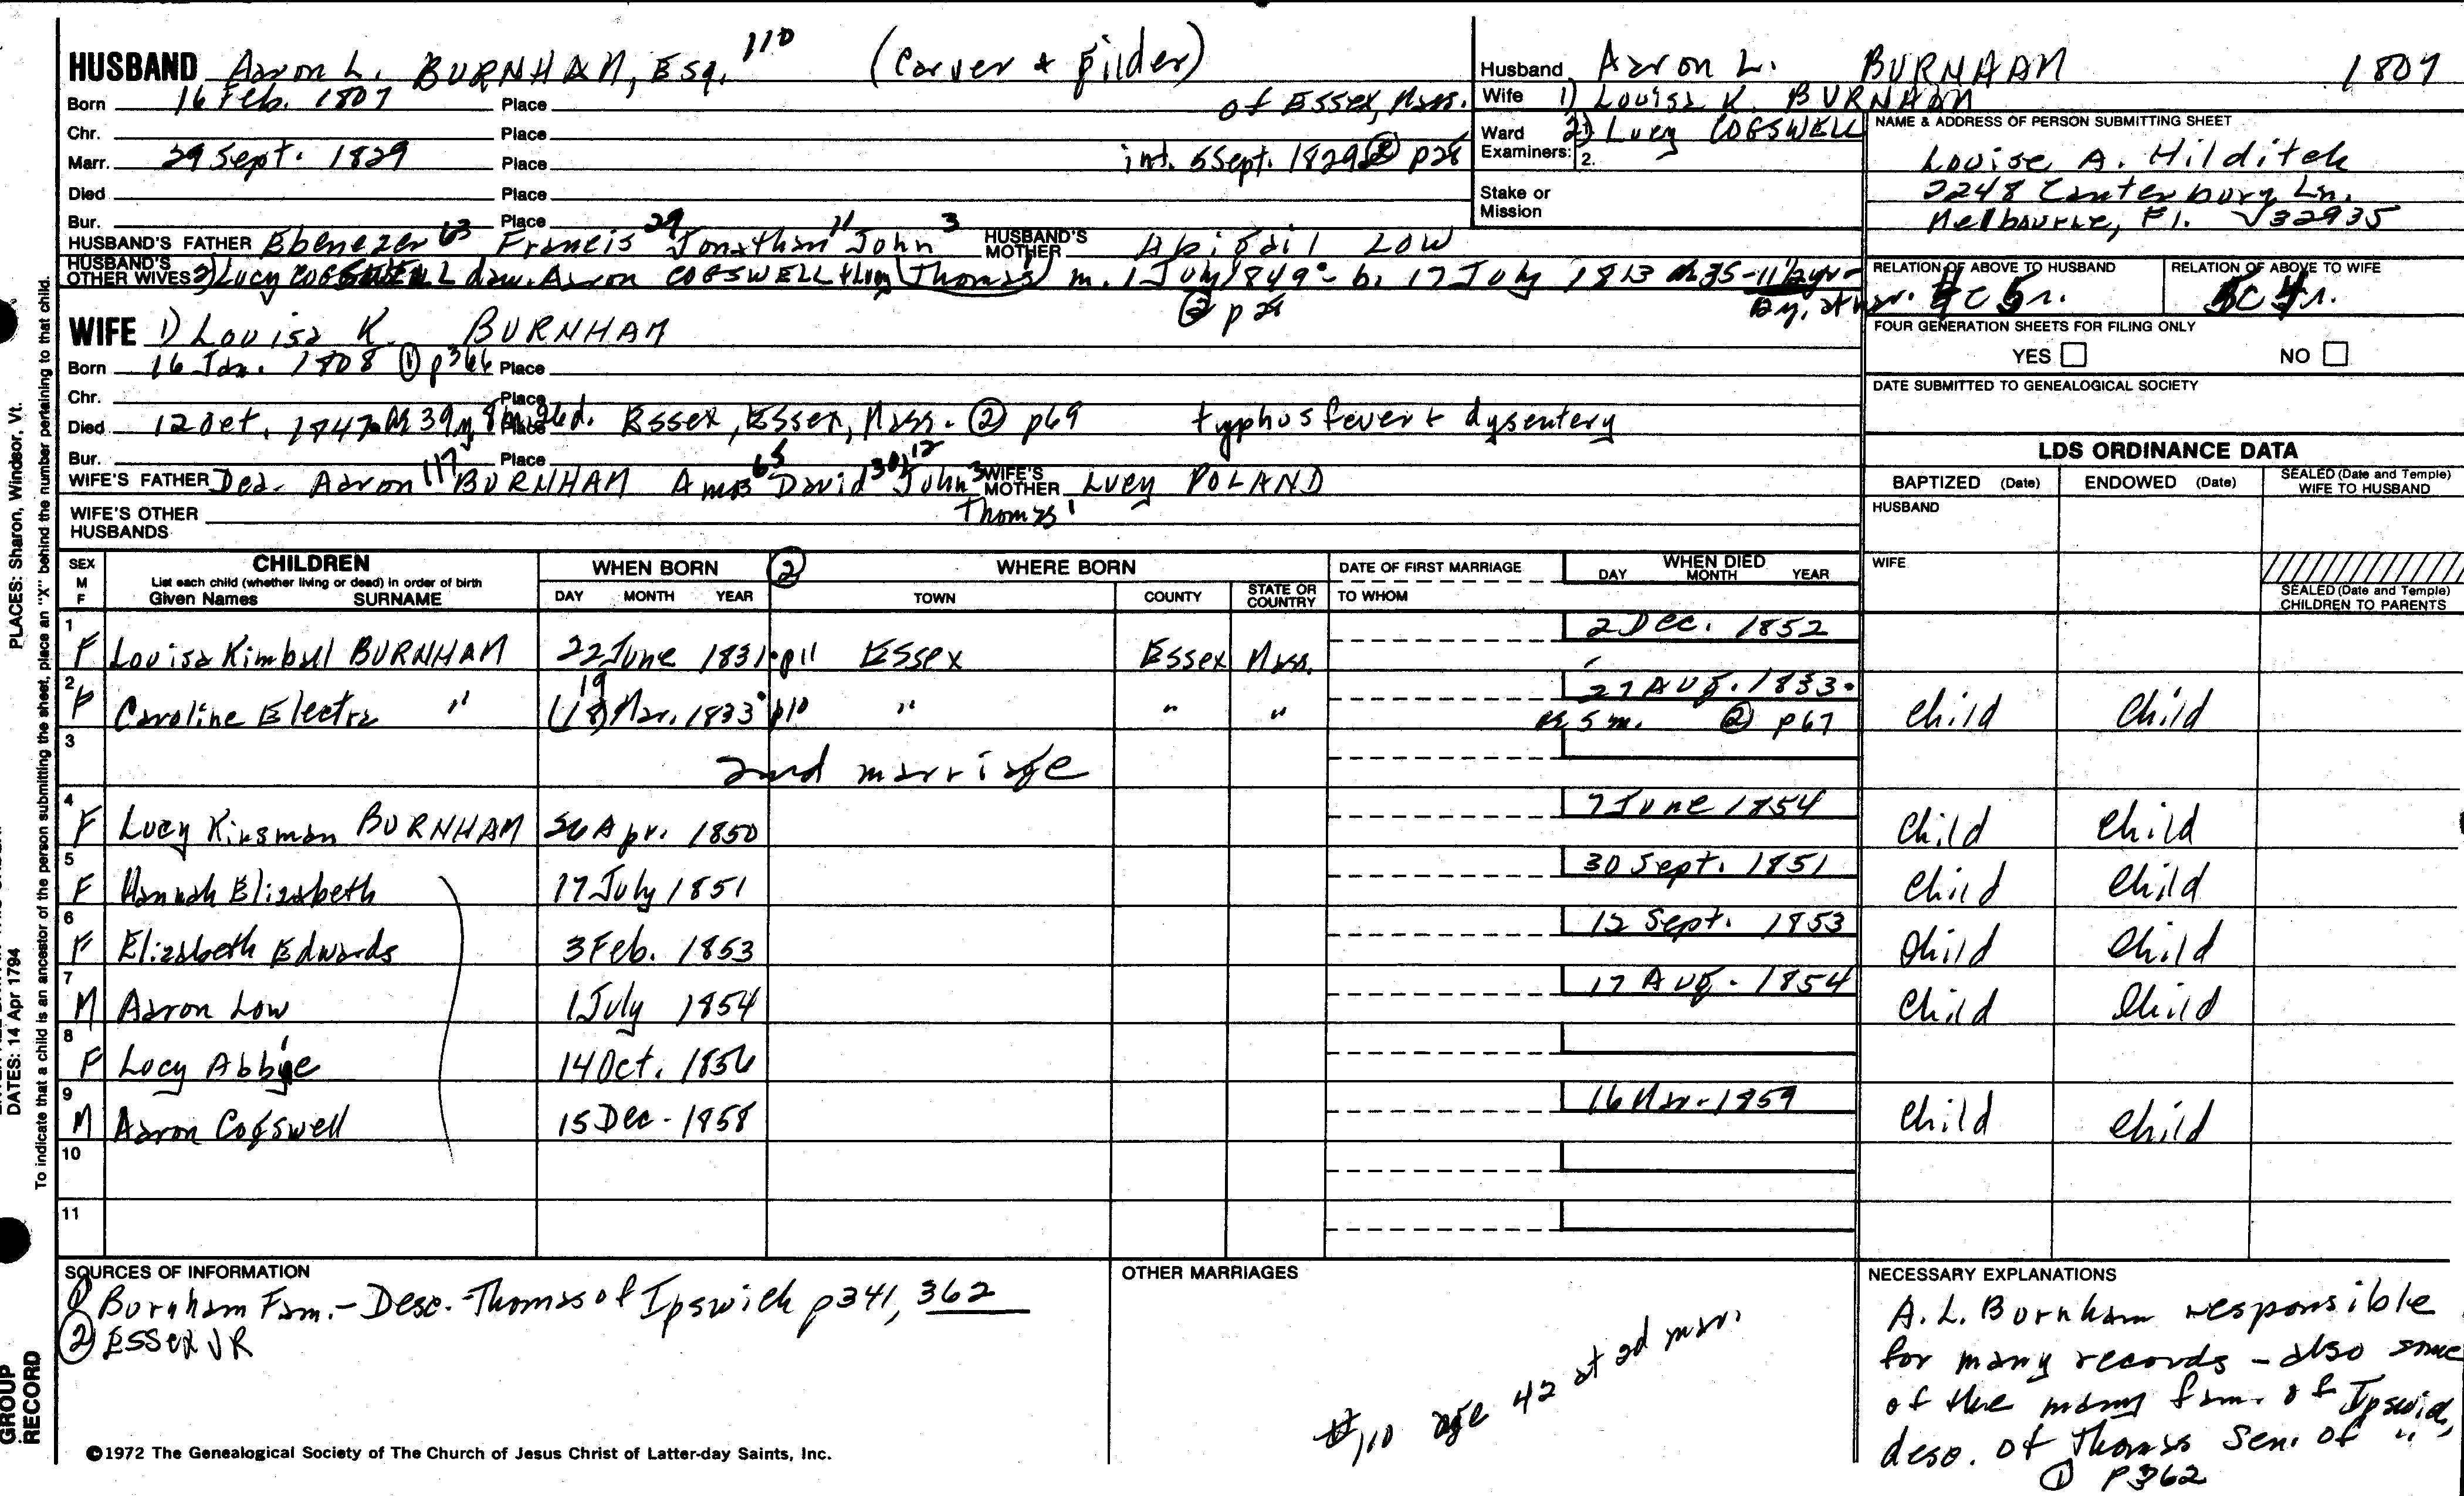 HUSBAND Aaron L. BURNHAM, Esq. 110 (Carver & Gilder)
Born 16 Feb. 1807 Place of Essex, Mass.
Chr. Place
Marr. 29 Sept. 1829 Place int. 5 Sept. 1829 ② p28
Died Place
Bur. Place
HUSBAND'S FATHER Ebenezer 63 Francis 29 Jonathan 11 John 3 HUSBAND'S MOTHER Abigail LOW
HUSBAND'S OTHER WIVES 2) Lucy COGSWELL dau. Aaron COGSWELL & Lucy (Thomas) m. 1 July 1849 - b. 17 July 1813
② p28
WIFE 1) Louisa K. BURNHAM
Born 16 Jan. 1808 ① p366 Place
Chr. Place
Died 12 Oct. 1847 39y 8m 26d. Place Essex, Essex, Mass. ② p69 typhus fever & dysentery
Bur. Place
WIFE'S FATHER Dea. Aaron 117 BURNHAM Amos 65 David 30, 12 John 3 WIFE'S MOTHER Lucy POLAND
Thomas 1
WIFE'S OTHER HUSBANDS
Husband Aaron L. BURNHAM 1807
Wife 1) Louisa K. BURNHAM
2) Lucy COGSWELL
Ward
Examiners: 2.
Stake or
Mission
NAME & ADDRESS OF PERSON SUBMITTING SHEET
Louise A. Hilditch
2248 Canterbury Ln.
Melbourne, Fl. 32935
RELATION OF ABOVE TO HUSBAND RELATION OF ABOVE TO WIFE
FOUR GENERATION SHEETS FOR FILING ONLY
YES NO
DATE SUBMITTED TO GENEALOGICAL SOCIETY
LDS ORDINANCE DATA
BAPTIZED (Date) ENDOWED (Date) SEALED (Date and Temple) WIFE TO HUSBAND
HUSBAND
WIFE
SEALED (Date and Temple) CHILDREN TO PARENTS
SEX M F CHILDREN List each child (whether living or dead) in order of birth Given Names SURNAME
WHEN BORN DAY MONTH YEAR
② WHERE BORN TOWN COUNTY STATE OR COUNTRY
DATE OF FIRST MARRIAGE TO WHOM
WHEN DIED DAY MONTH YEAR
1 F Louisa Kimball BURNHAM 22 June 1831 p11 Essex Essex Mass. 2 Dec. 1852
2 F Caroline Electra " 19 (18) Mar. 1833 p10 " " " 27 Aug. 1833. 5 m. ② p67 Child Child
3 2nd marriage
4 F Lucy Kinsman BURNHAM 26 Apr. 1850 7 June 1854 Child Child
5 F Hannah Elizabeth 17 July 1851 30 Sept. 1851 Child Child
6 F Elizabeth Edwards 3 Feb. 1853 12 Sept. 1853 Child Child
7 M Aaron Low 1 July 1854 17 Aug. 1854 Child Child
8 F Lucy Abbie 14 Oct. 1856
9 M Aaron Cogswell 15 Dec. 1858 16 Mar. 1859 Child Child
10
11
SOURCES OF INFORMATION
① Burnham Fam. - Desc. Thomas of Ipswich p341, 362
② Essex VR
OTHER MARRIAGES
#110 age 42 at 2d mar.
NECESSARY EXPLANATIONS
A. L. Burnham responsible
for many records - also some
of the many fam. of Ipswich,
desc. of Thomas Sen. of "
① p362
©1972 The Genealogical Society of The Church of Jesus Christ of Latter-day Saints, Inc.
PLACES: Sharon, Windsor, Vt.
DATES: 14 Apr 1794
To indicate that a child is an ancestor of the person submitting the sheet, place an "X" behind the number pertaining to that child.
GROUP
RECORD